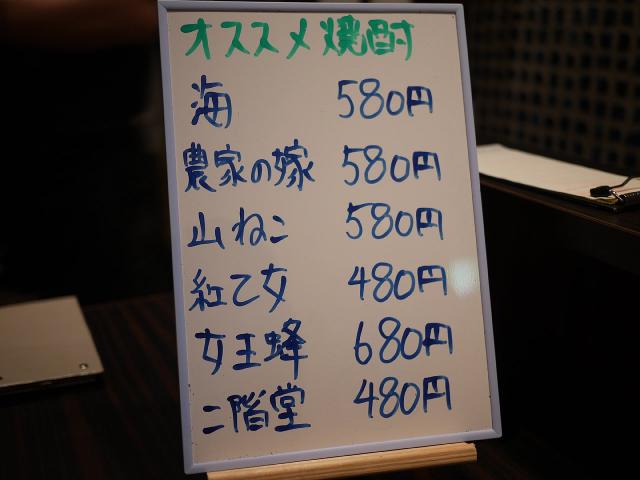 オススメ焼酎
海 580円
農家の嫁 580円
山ねこ 580円
紅乙女 480円
女王蜂 680円
二階堂 480円